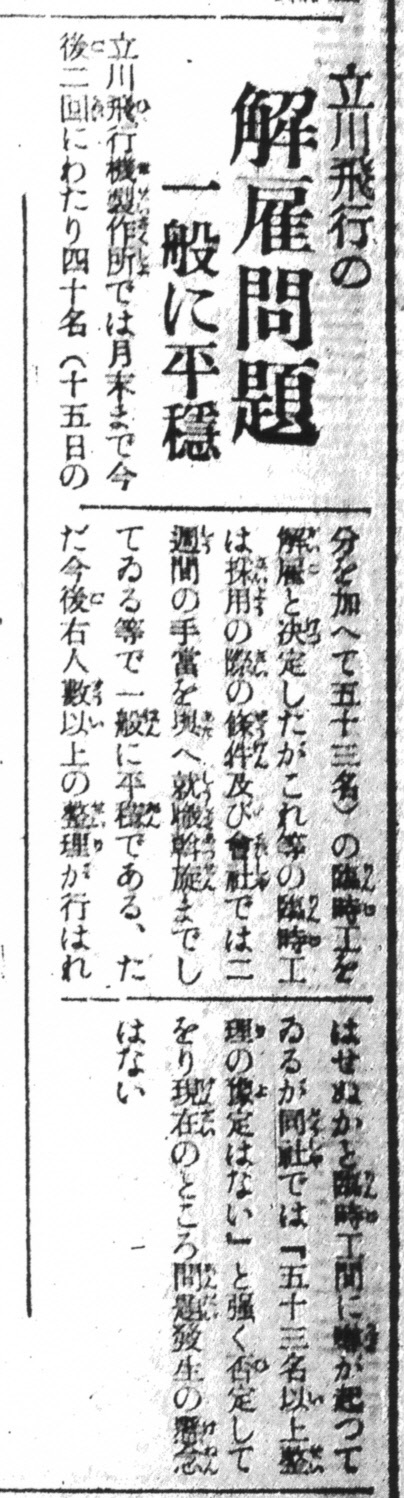 立川飛行の
解雇問題
一般に平穩
立川飛行機製作所では月末まで今
後二回にわたり四十名(十五日の
分を加へて五十三名)の臨時工を
解雇と決定したがこれ等の臨時工
は採用の際の條件及び會社では二
週間の手當を與へ就職斡旋までし
てゐる等で一般に平穩である、た
だ今後右人數以上の整理が行はれ
はせぬかと臨時工間に噂が起つて
ゐるが同社では『五十三名以上整
理の豫定はない』と强く否定して
をり現在のところ問題發生の懸念
はない